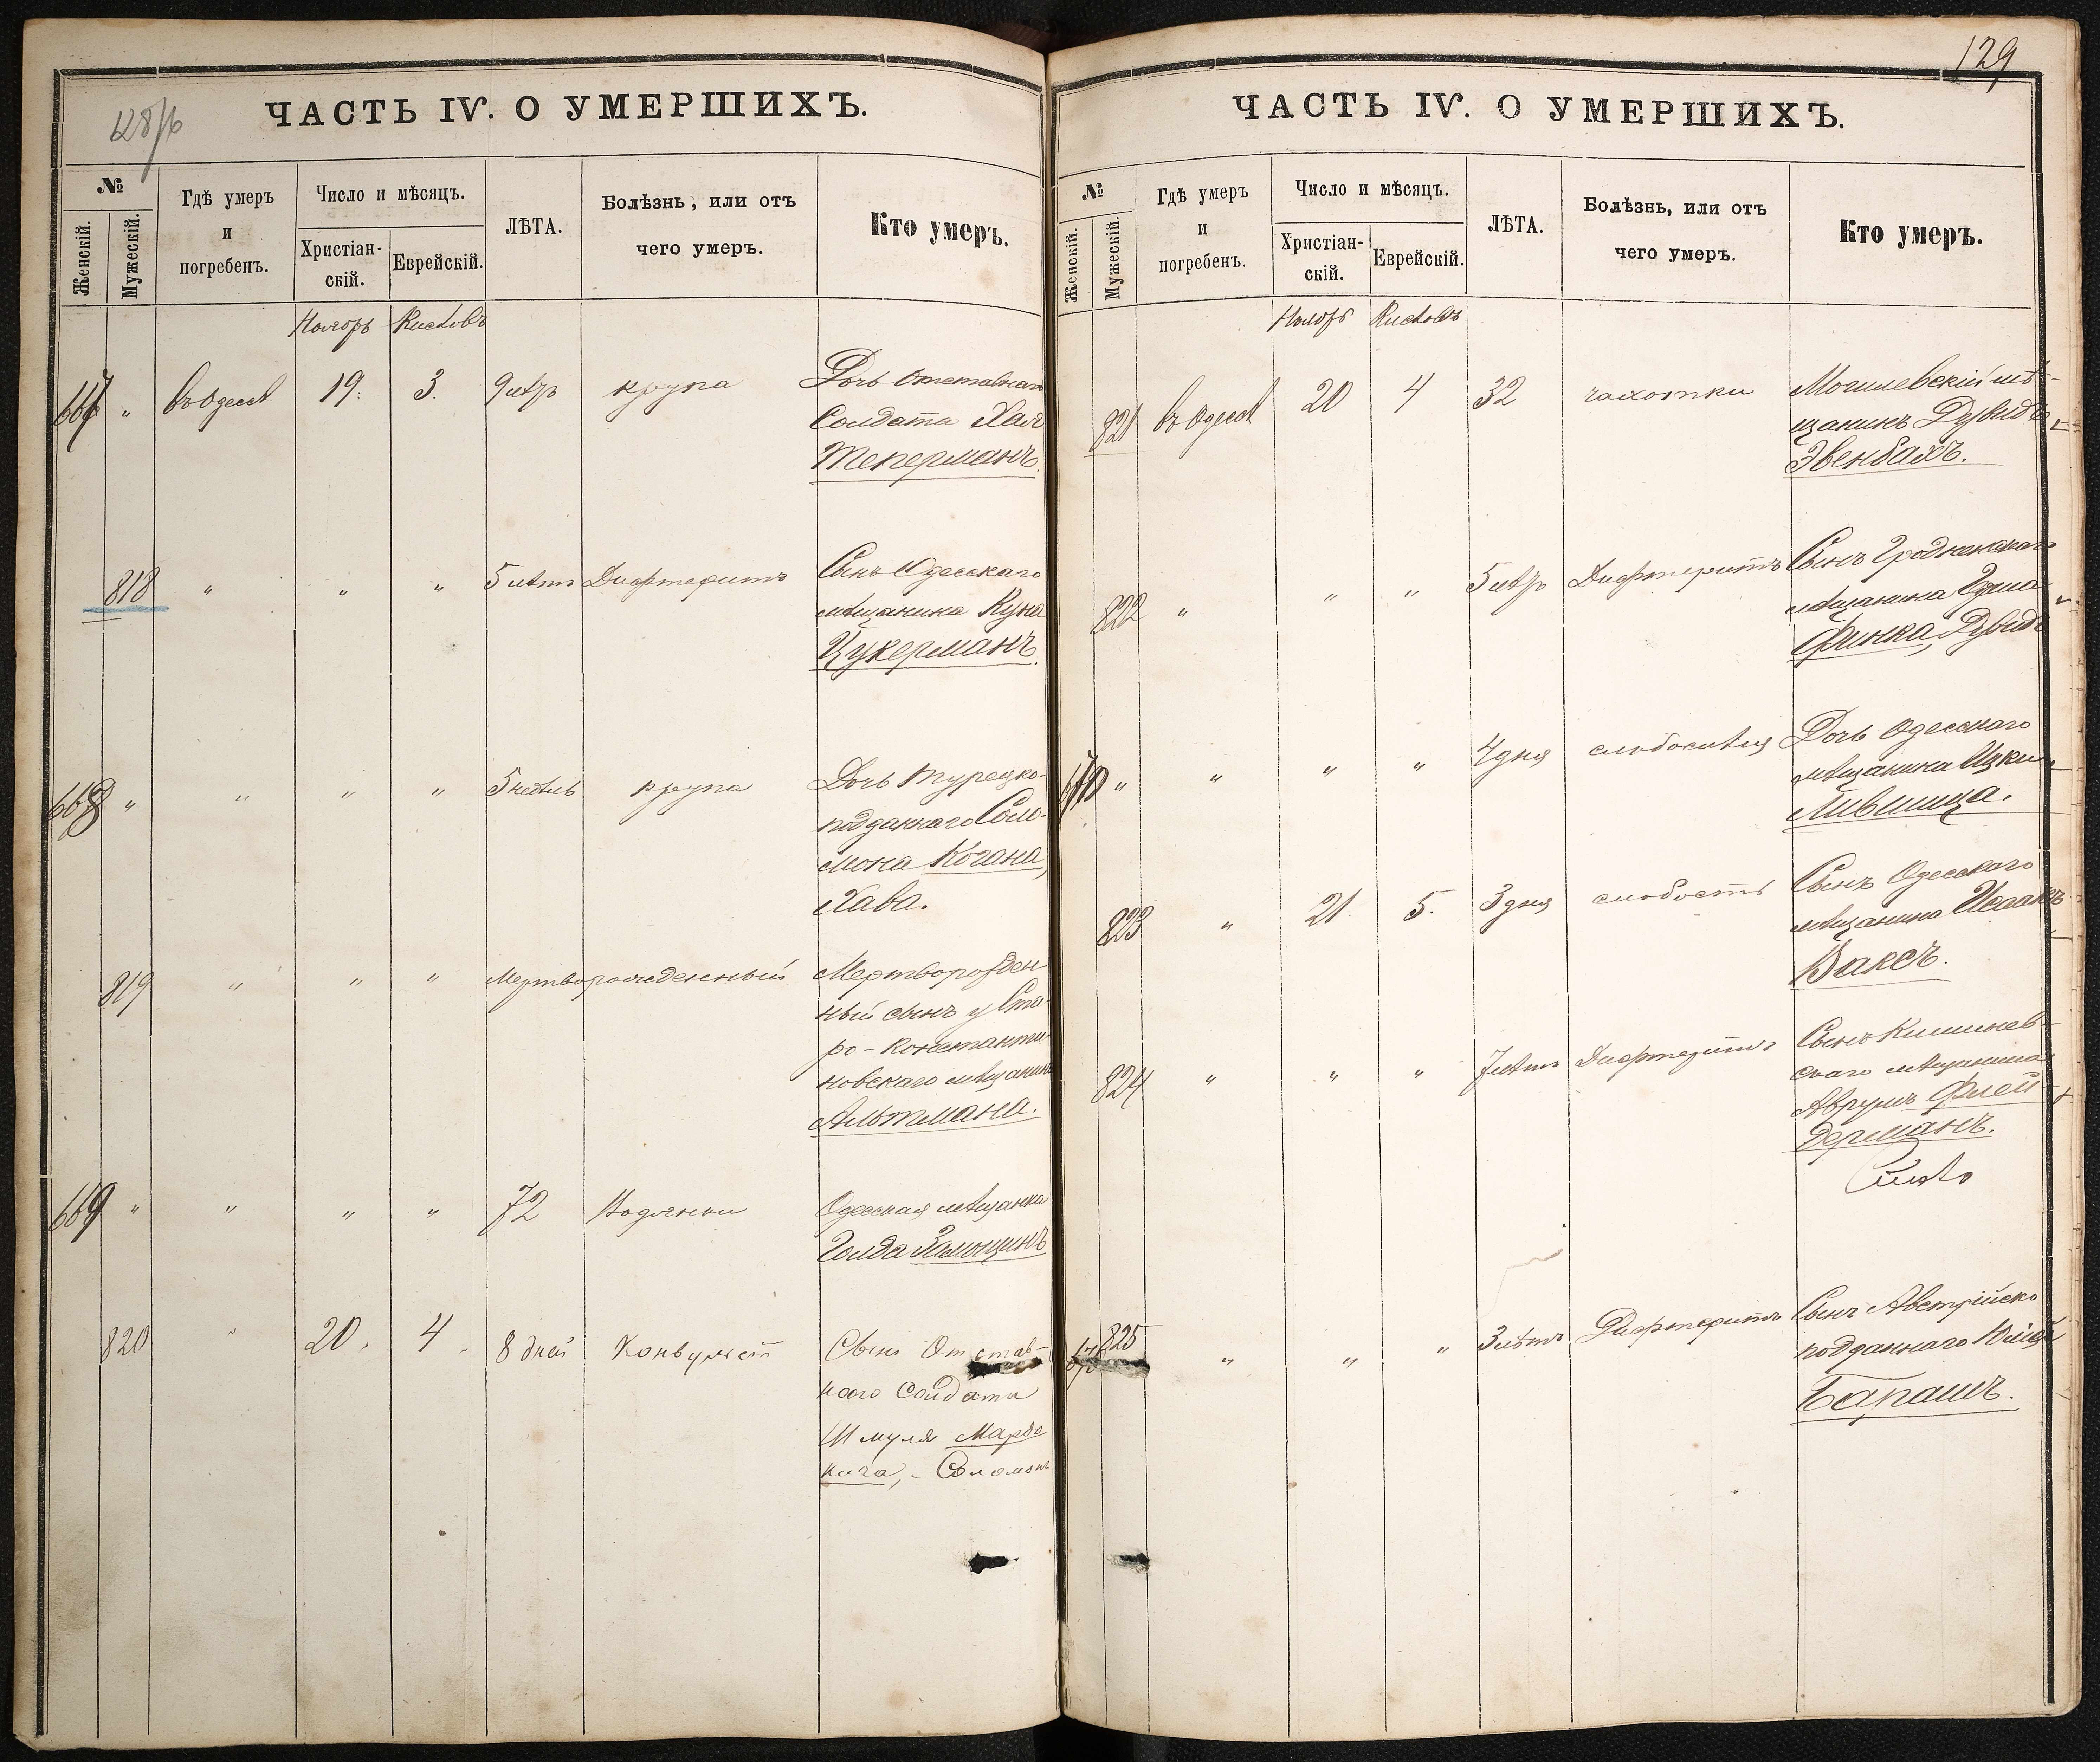 ЧАСТЬ IV. О УМЕРШИХЪ.
№
Женскій.
Мужескій.
Гдѣ умеръ
и
погребенъ.
Число и мѣсяцъ.
Христіан-
скій.
Еврейскій.
ЛѢТА.
Болѣзнь, или отъ
чего умеръ.
Кто умеръ.
Ноябрь Кислевъ
667 " въ Одессѣ 19. 3. крупа Дочь Отставнаго
Солдата Хая
Теперманъ.
818 " " " 5 лѣтъ Дифтеритъ Сынъ Одесскаго
мѣщанина
Цукерманъ.
668 " " " " 5 недѣль крупа Дочь Турецко-
подданнаго Соло-
мона Когана,
Хава.
819 " " " Мертворожденный Мертворожден-
ный сынъ у Ста-
ро-Константи-
новскаго мѣщанина
Альтмана.
669 " " " " 72 Водянки Одесская мѣщанка
Голда
820 " 20. 4. 8 дней Конвульсіи Сынъ Отстав-
ного Солдата
Шмуля Мардо
кича, - Соломонъ
129
ЧАСТЬ IV. О УМЕРШИХЪ.
№
Женскій.
Мужескій.
Гдѣ умеръ
и
погребенъ.
Число и мѣсяцъ.
Христіан-
скій.
Еврейскій.
ЛѢТА.
Болѣзнь, или отъ
чего умеръ.
Кто умеръ.
Ноябрь Кислевъ
821 въ Одессѣ 20 4 32 чахотки Могилевскій мѣ-
щанинъ Дувидъ
Эвенбахъ.
822 " " " Дифтеритъ Сынъ Гродненскаго
мѣщанина
Финка, Дувидъ
670 " " " " 4 дня слабосилія Дочь Одесскаго
мѣщанина Ицки
Лившица.
823 " 21 5. 3 дня слабость Сынъ Одесскаго
мѣщанина Исаакъ
Ваксъ.
824 " " " 7 лѣтъ Дифтеритъ Сынъ Кишинев-
скаго мѣщанина
Аврумъ Флей-
дерманъ.
825 " " " 3 лѣтъ Дифтеритъ Сынъ Австрійско
подданнаго
Барашъ.